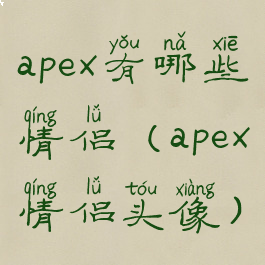 yǒu nǎ xiē
apex有哪些
qíng lǚ
情侣（apex
qíng lǚ tóu xiàng
情侣头像）